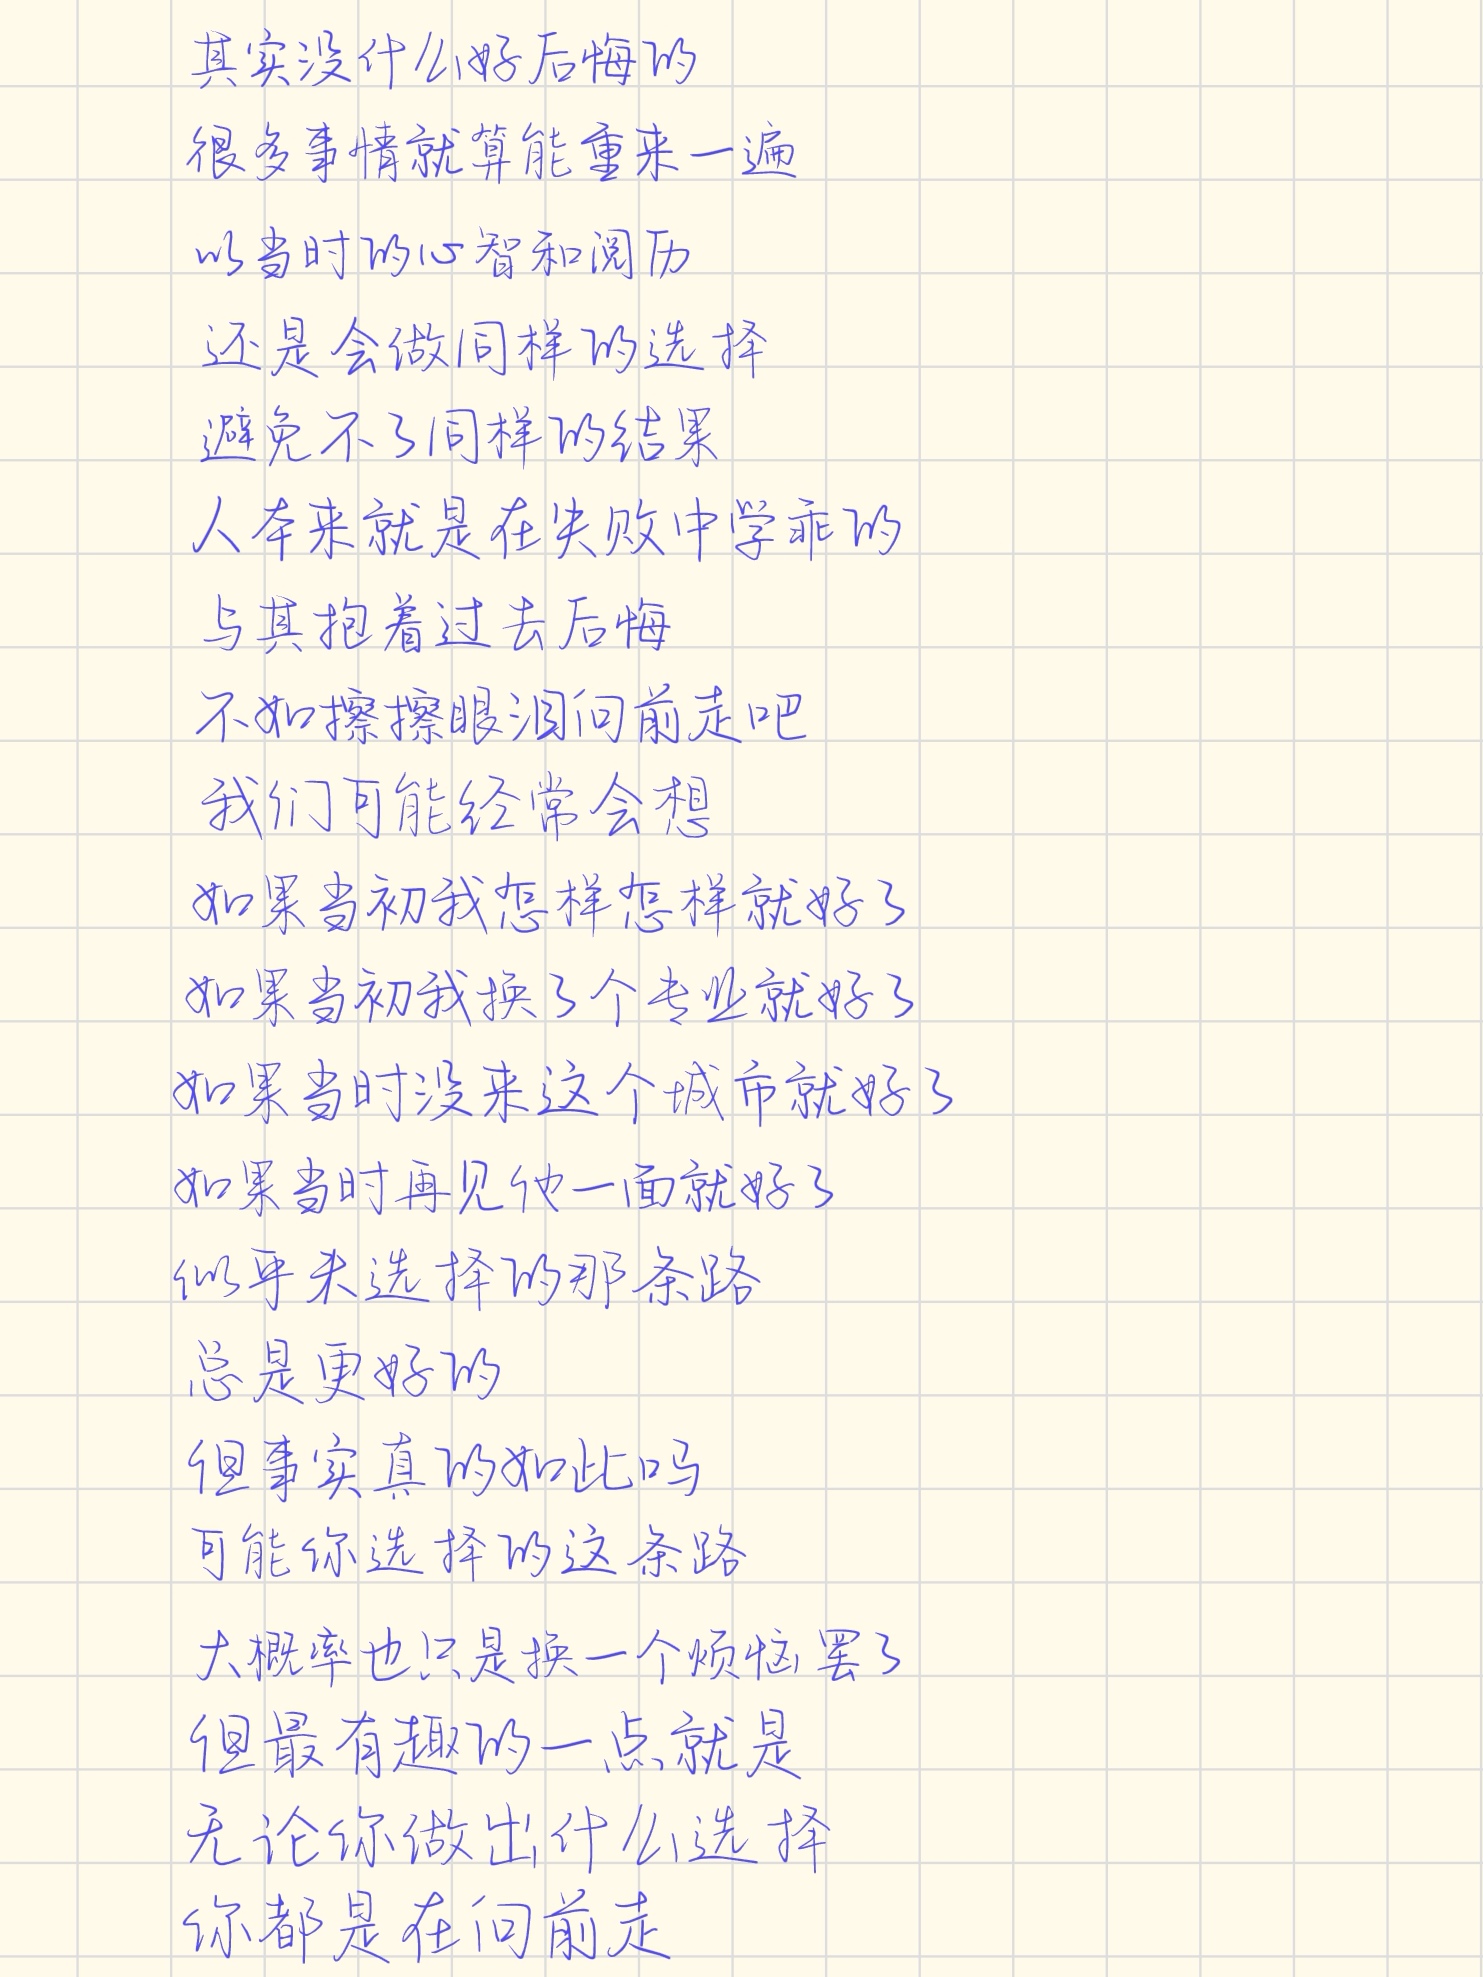 其实没什么好后悔的
很多事情就算能重来一遍
以当时的心智和阅历
还是会做同样的选择
避免不了同样的结果
人本来就是在失败中学乖的
与其抱着过去后悔
不如擦擦眼泪向前走吧
我们可能经常会想
如果当初我怎样怎样就好了
如果当初我换了个专业就好了
如果当时没来这个城市就好了
如果当时再见他一面就好了
似乎未选择的那条路
总是更好的
但事实真的如此吗
可能你选择的这条路
大概率也只是换一个烦恼罢了
但最有趣的一点就是
无论你做出什么选择
你都是在向前走